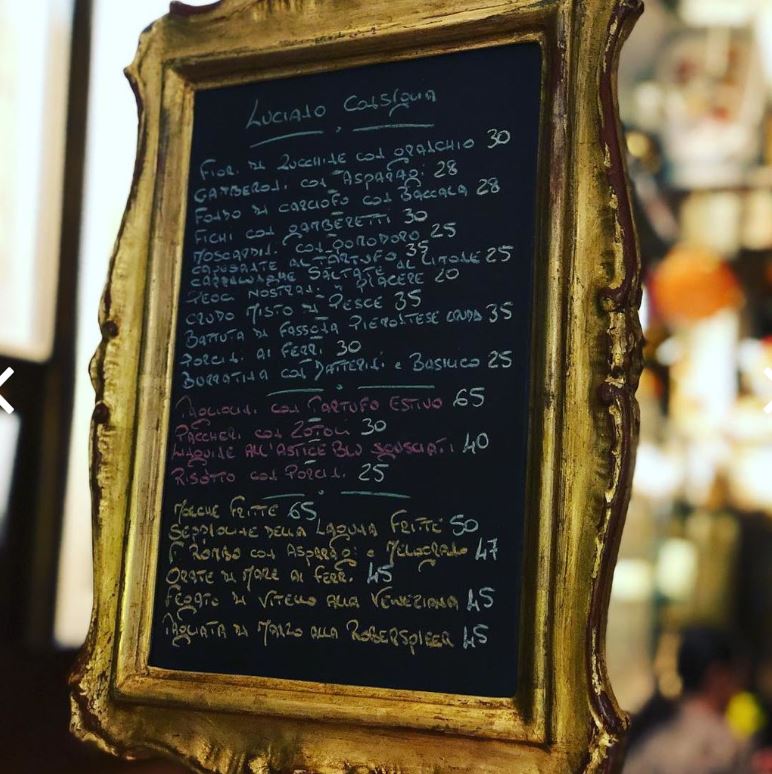 Luciano Consiglia
Fiori di Zucchine con granchio 30
Gamberoni con Asparagi 28
Fondo di carciofo con Baccala 28
Fichi con gamberetti 30
Moscardini con pomodoro 25
Capesante al Tartufo 35
Cappelunghe saltate al limone 25
Peoci nostrani a piacere 20
Crudo misto di Pesce 35
Battuta di Fassona Piemontese cruda 35
Porcini ai Ferri 30
Burratina con Datterini e Basilico 25
Tagliolini con Tartufo Estivo 65
Paccheri con Zotoli 30
Linguine all'Astice Blu sgusciati 40
Risotto con Porcini 25
Moeche Fritte 65
Seppioline della Laguna Fritte 50
Rombo con Asparagi e Melograno 47
Orate di Mare ai Ferri 45
Fegato di Vitello alla Veneziana 45
Tagliata di Manzo alla Roberspieer 45